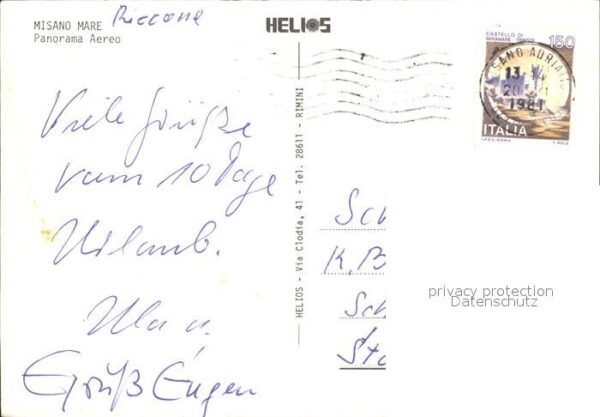 MISANO MARE Riccone
Panorama Aereo
HELIOS
CASTELLO DI
MIRAMARE - TRIESTE
150
SANO ADRIA
13
20
1981
ITALIA
I.P.Z.S. ROMA
E. MELE
Viele Grüße
vom 10 Tage
Urlaub.
Ula u.
Grüß Eugen
HELIOS - Via Clodia, 41 - Tel. 28611 - RIMINI
Sch
K.B
Sch
Stu
privacy protection
Datenschutz